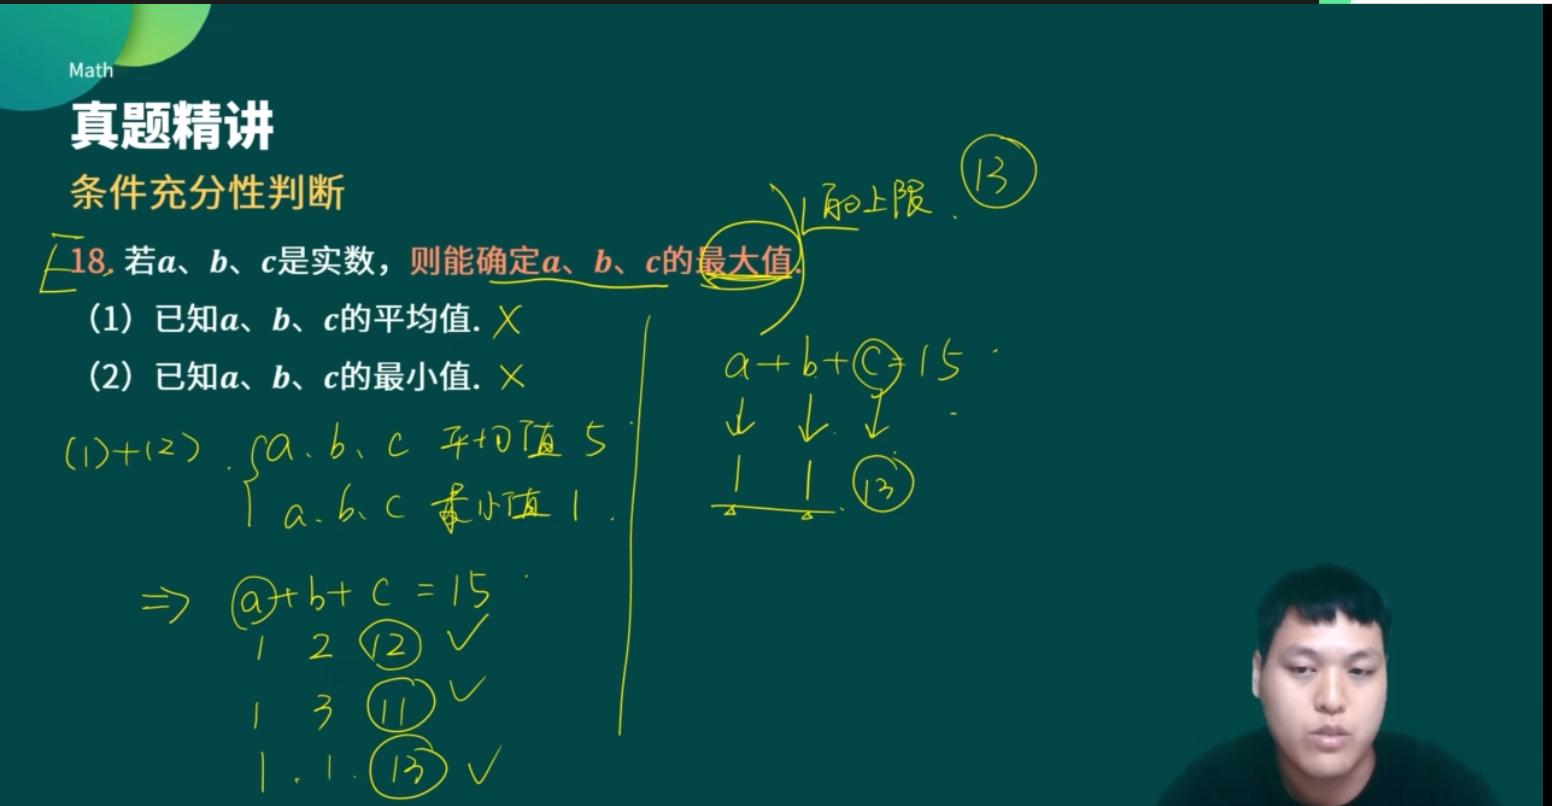 Math
真题精讲
条件充分性判断
18. 若a、b、c是实数，则能确定a、b、c的最大值.
的上限. 13
（1）已知a、b、c的平均值. X
（2）已知a、b、c的最小值. X
(1)+(2). { a、b、c 平均值 5
a、b、c 最小值 1.
⇒ a+b+c=15
1 2 12 ✓
1 3 11 ✓
1. 1. 13 ✓
a+b+c=15
↓ ↓ ↓
1 1 13